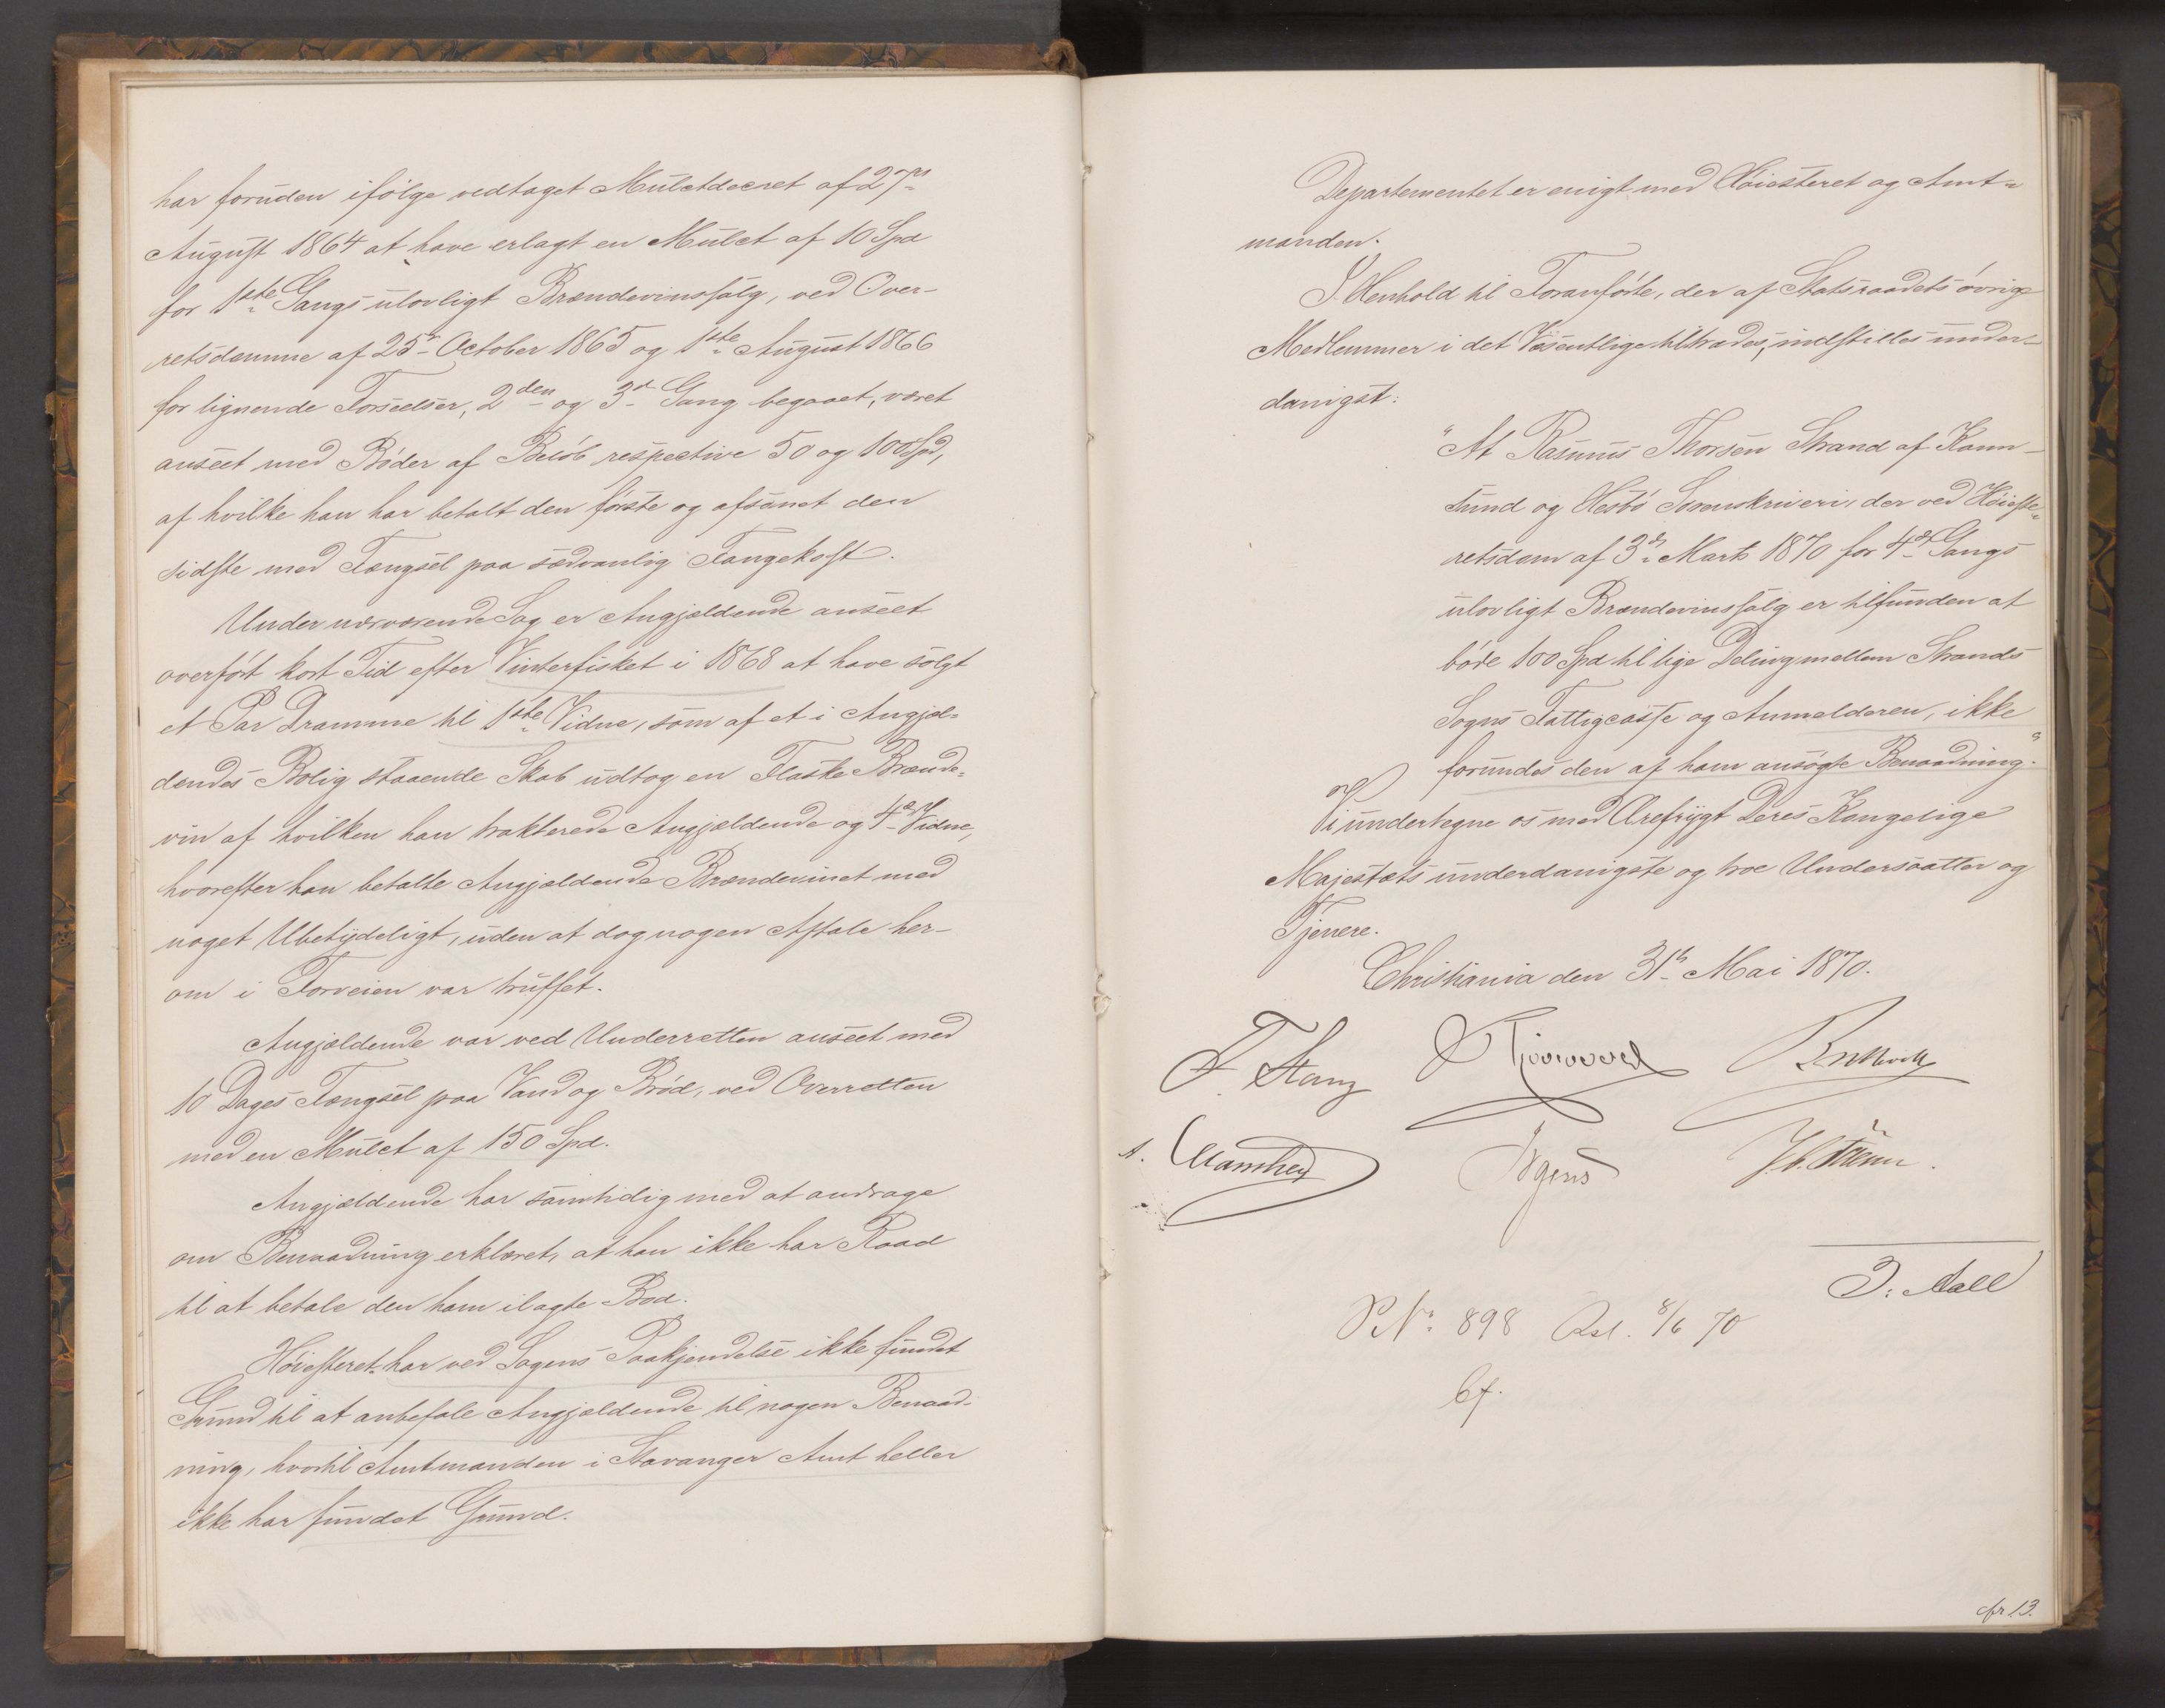 har foruden ifølge vedtaget Mulctdecret af 27de
August 1864 at have erlagt en Mulct af 10 Spd
for 1ste Gangs ulovligt Brændevinssalg, ved Over-
retsdomme af 25de October 1865 og 1ste August 1866
for lignende Forseelser, 2den og 3de Gang begaaet, været
anseet med Bøder af Beløb respective 50 og 100 Spd,
af hvilke han har betalt den første og afsonet den
sidste med Fængsel paa sædvanlig Fangekost.
Under nærværende Sag er Angjældende anseet
overført kort Tid efter Vinterfisket i 1868 at have solgt
et Par Dramme til 1ste Vidne, som af et i Angjæl-
dendes Bolig staaende Skab udtog en Flaske Brænde-
vin af hvilken han trakterede Angjældende og 4de Vidne,
hvorefter han betalte Angjældende Brændevinet med
noget Ubetydeligt, uden at dog nogen Aftale her-
om i Forveien var truffet.
Angjældende var ved Underretten anseet med
10 Dages Fængsel paa Vand og Brød, ved Overretten
med en Mulct af 150 Spd.
Angjældende har samtidig med at andrage
om Benaadning erklæret, at han ikke har Raad
til at betale den ham ilagte Bod.
Høiesteret har ved Sagens Paakjendelse ikke fundet
Grund til at anbefale Angjældende til nogen Benaad-
ning, hvortil Amtmanden i Stavanger Amt heller
ikke har fundet Grund.
Departementet er enigt med Høiesteret og Amt-
manden.
I Henhold til Foranførte, der af Statsraadets øvrige
Medlemmer i det Væsentlige tiltrædes, indstilles under-
danigst:
"At Rasmus Thorsen Strand af Karm-
sund og Hesbø Sorenskriveri, der ved Høieste-
retsdom af 3de Marts 1870 for 4de Gangs
ulovligt Brændevinssalg er tilfunden at
bøde 100 Spd til lige Deling mellem Strands
Sogns Fattigcasse og Anmelderen, ikke
forundes den af ham ansøgte Benaadning."
Vi undertegne os med Ærefrygt Deres Kongelige
Majestæts underdanigste og troe Undersaatter og
Tjenere.
Christiania den 31te Mai 1870.
F. Stang
Irgens
J. Aall
P. No. 898 Res. 8/6 70